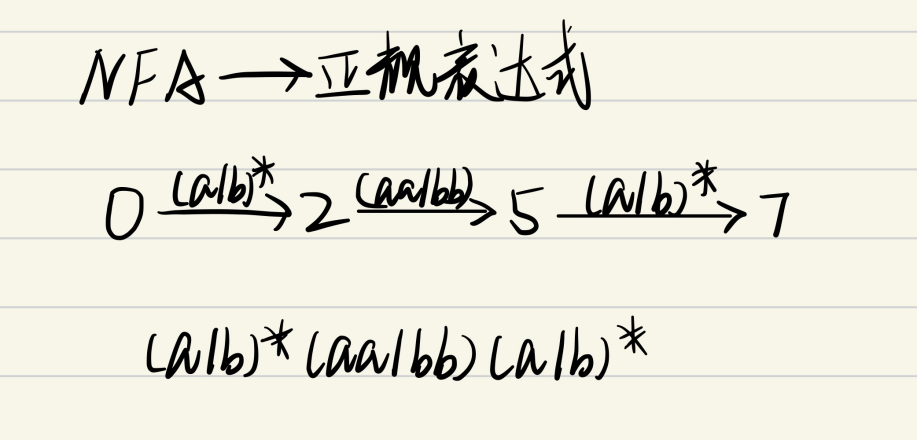 NFA→正规表达式
0 (a|b)* → 2 (aa|bb) → 5 (a|b)* → 7
(a|b)*(aa|bb)(a|b)*